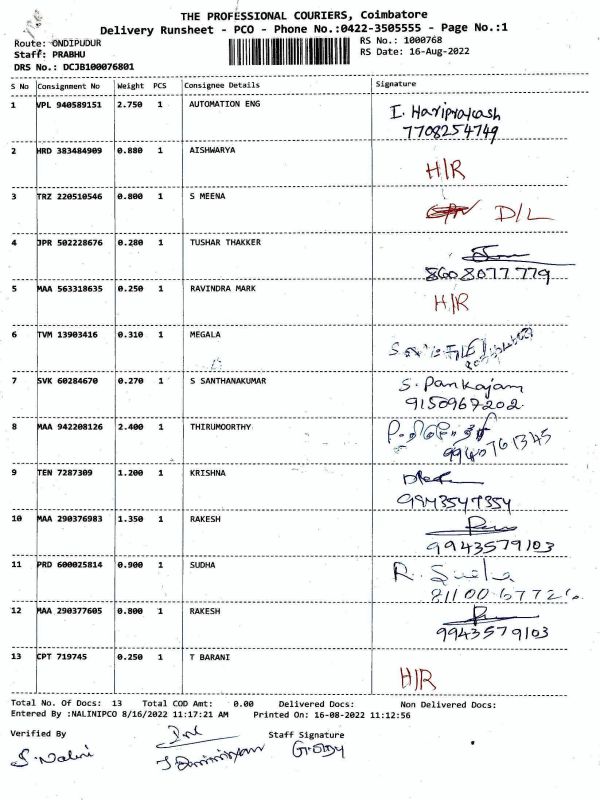 THE PROFESSIONAL COURIERS, Coimbatore
Delivery Runsheet - PCO - Phone No.:0422-3505555 - Page No.:1
Route: ONDIPUDUR
RS No.: 1000768
Staff: PRABHU
RS Date: 16-Aug-2022
DRS No.: DCJB100076801
S No Consignment No Weight PCS Consignee Details Signature
1 VPL 940589151 2.750 1 AUTOMATION ENG I. Hariprakash
7708254749
2 HRD 383484909 0.880 1 AISHWARYA
H/R
3 TRZ 220510546 0.800 1 S MEENA
D/L
4 JPR 502228676 0.280 1 TUSHAR THAKKER
8608077779
5 MAA 563318635 0.250 1 RAVINDRA MARK
H/R
6 TVM 13903416 0.310 1 MEGALA
7 SVK 60284670 0.270 1 S SANTHANAKUMAR S. Pankajam
9150967202
8 MAA 942208126 2.400 1 THIRUMOORTHY
9940761345
9 TEN 7287309 1.200 1 KRISHNA
9943547354
10 MAA 290376983 1.350 1 RAKESH
9943579103
11 PRD 600025814 0.900 1 SUDHA R. Sudha
81100 67726
12 MAA 290377605 0.800 1 RAKESH
9943579103
13 CPT 719745 0.250 1 T BARANI
H/R
Total No. Of Docs: 13 Total COD Amt: 0.00 Delivered Docs: Non Delivered Docs:
Entered By :NALINIPCO 8/16/2022 11:17:21 AM Printed On: 16-08-2022 11:12:56
Verified By Staff Signature
S. Nalini